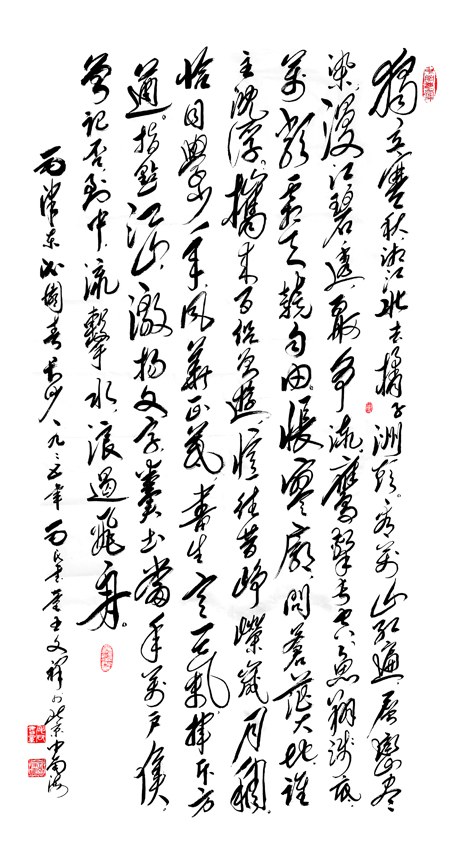 獨立寒秋,湘江北去,橘子洲頭。看萬山紅遍,層巒盡
染,漫江碧透,爭流。鷹擊長空,魚翔淺底,
萬類霜天競自由。悵寥廓,問蒼茫大地,誰
主沉浮。攜來百侶曾遊,憶往昔崢嶸歲月稠。
恰同學少年,風華正茂,書生意氣,揮斥方
遒。指點江山,激揚文字,糞土當年萬戶侯。
曾記否,到中流擊水,浪遏飛舟。
毛澤東沁園春長沙一九二五年